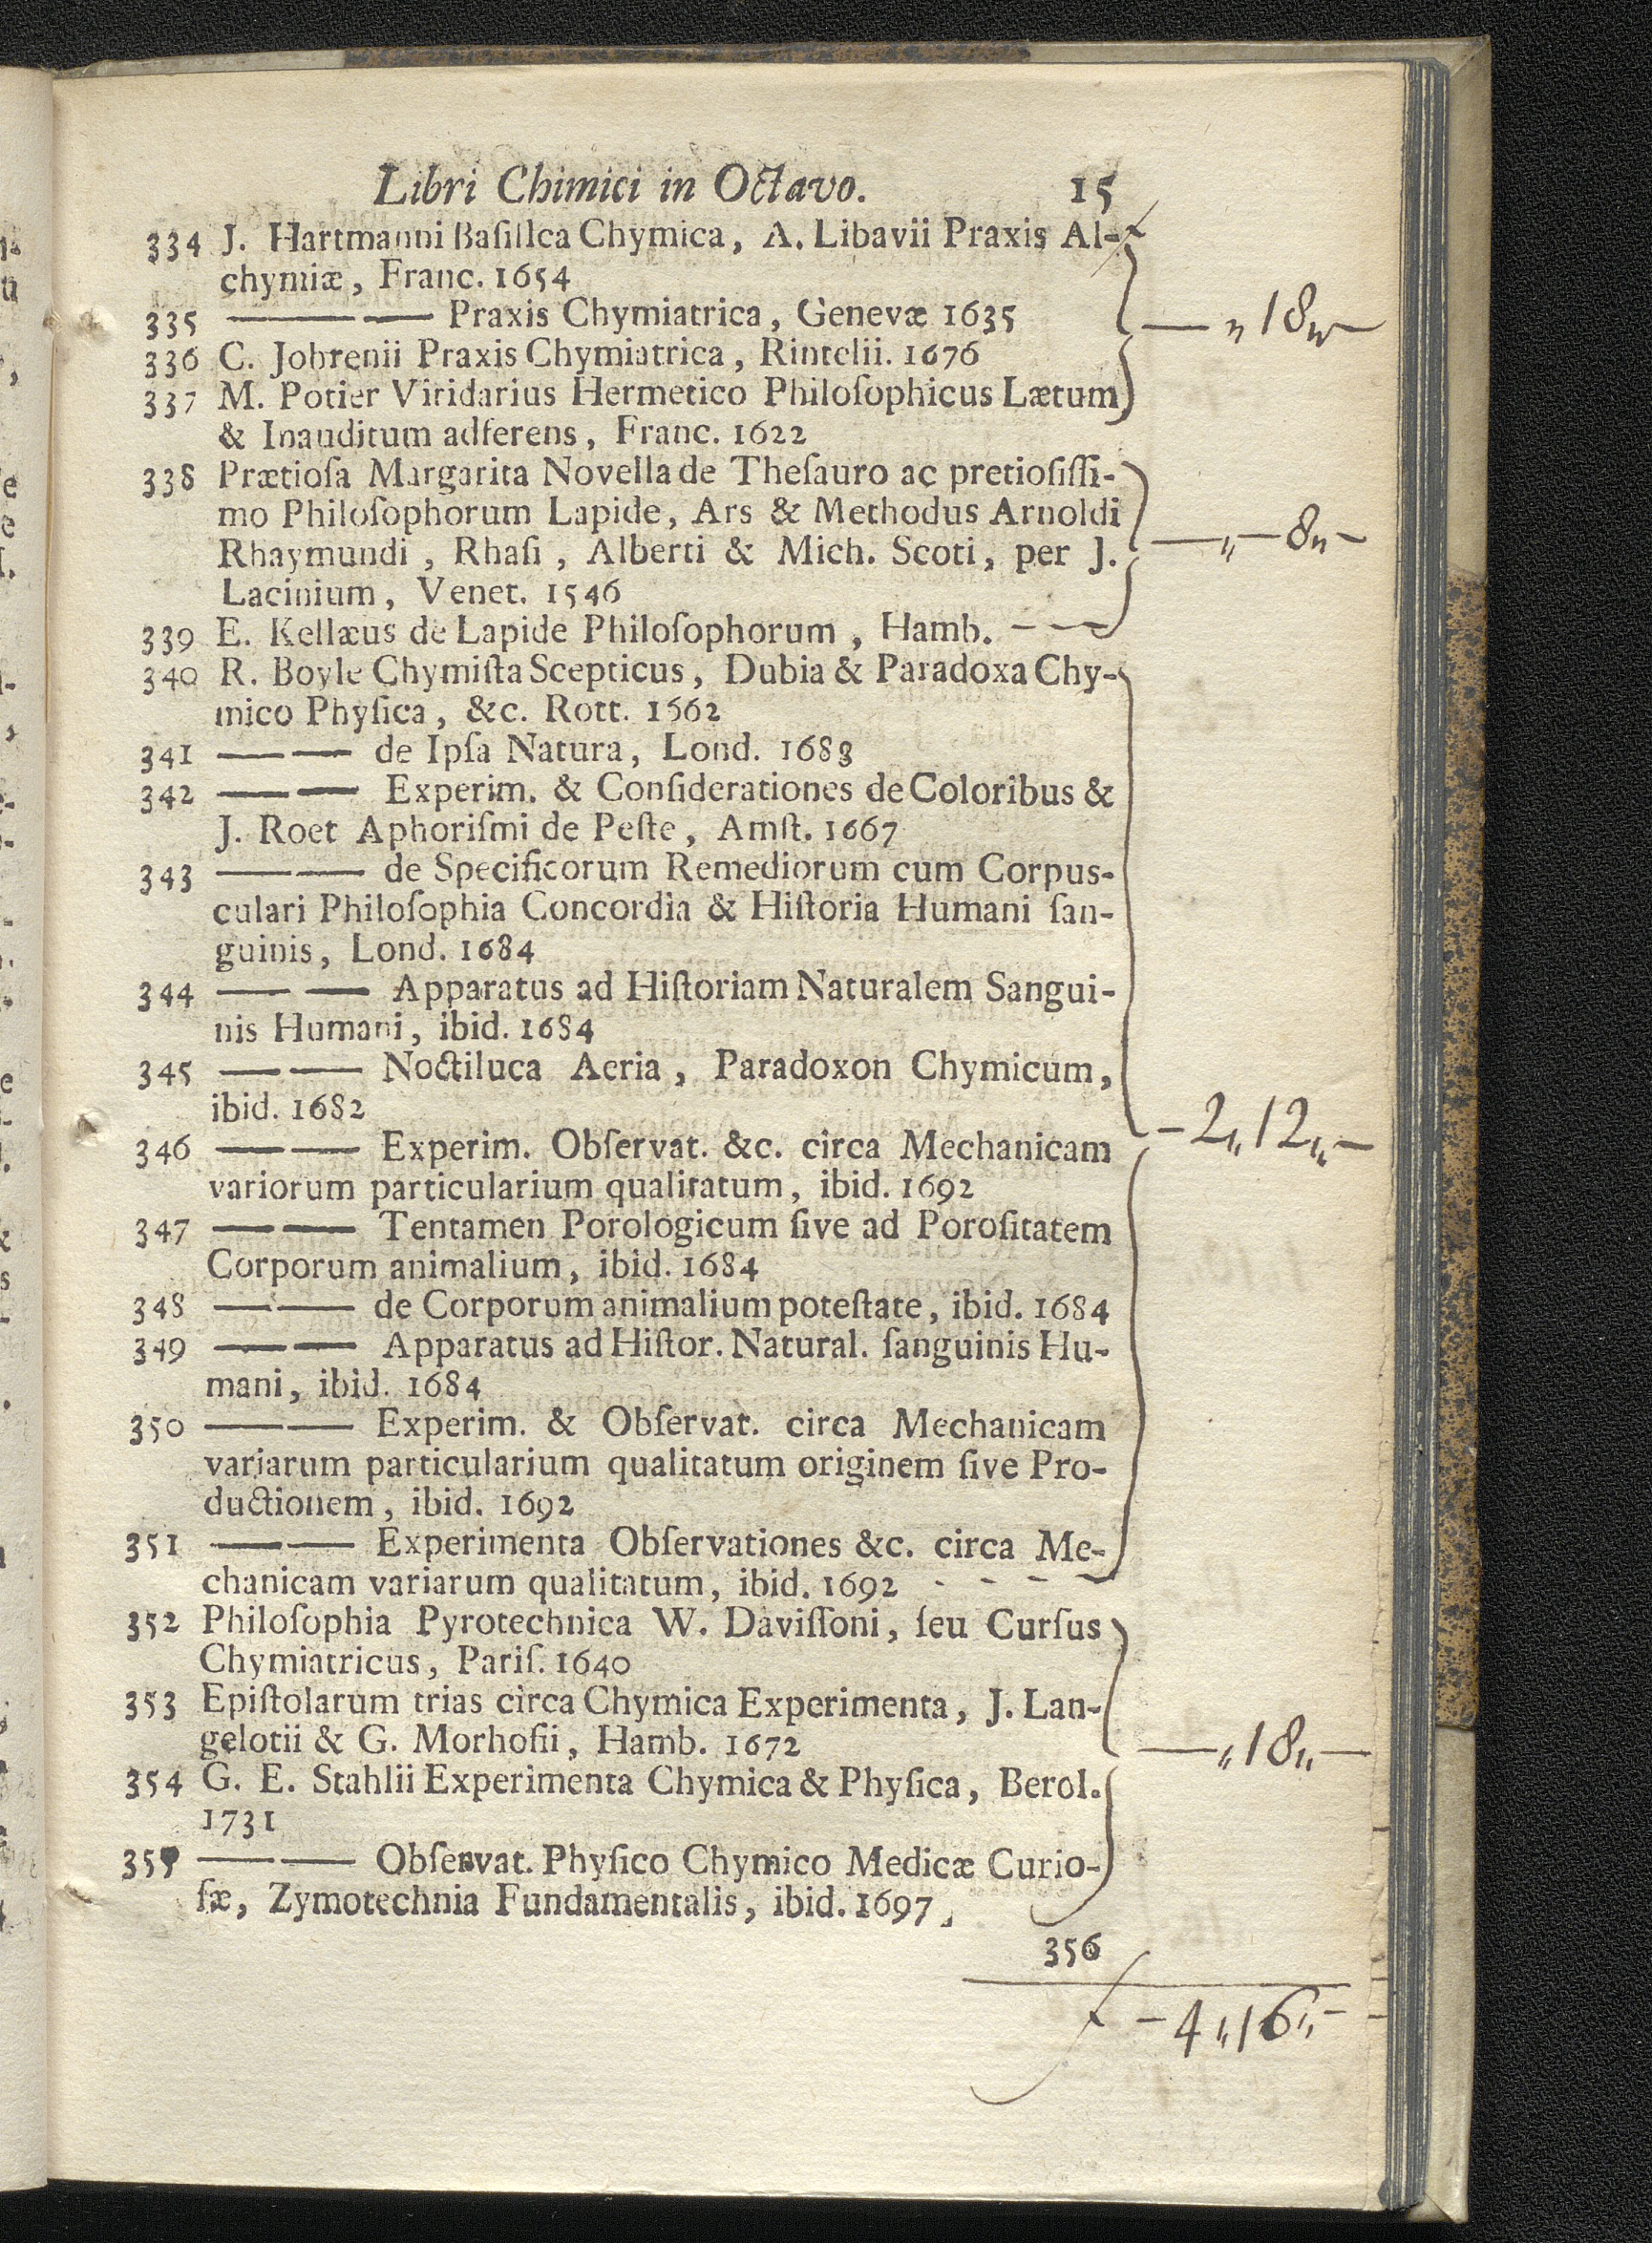 Libri Chimici in Octavo. 15
334 J. Hartmanni Baſillca Chymica, A. Libavii Praxis Al-
chymiæ, Franc. 1654
335 —— — Praxis Chymiatrica, Genevæ 1635
— „ 18 „ —
336 C. Jobrenii Praxis Chymiatrica, Rintelii. 1676
337 M. Potier Viridarius Hermetico Philoſophicus Lætum
& Inauditum adferens, Franc. 1622
338 Prætioſa Margarita Novella de Theſauro ac pretioſiſſi-
mo Philoſophorum Lapide, Ars & Methodus Arnoldi
Rhaymundi, Rhaſi, Alberti & Mich. Scoti, per J.
— „ — 8 „ —
Lacinium, Venet. 1546
339 E. Kellæus de Lapide Philoſophorum, Hamb. - - -
340 R. Boyle Chymiſta Scepticus, Dubia & Paradoxa Chy-
mico Phyſica, &c. Rott. 1662
341 — — de Ipſa Natura, Lond. 1688
342 — — Experim. & Conſiderationes de Coloribus &
J. Roet Aphoriſmi de Peſte, Amſt. 1667
343 — — de Specificorum Remediorum cum Corpus-
culari Philoſophia Concordia & Hiſtoria Humani ſan-
guinis, Lond. 1684
344 — — Apparatus ad Hiſtoriam Naturalem Sangui-
nis Humani, ibid. 1684
345 — — Noctiluca Aeria, Paradoxon Chymicum,
ibid. 1682
— 2 „ 12 „ —
346 — — Experim. Obſervat. &c. circa Mechanicam
variorum particularium qualitatum, ibid. 1692
347 — — Tentamen Porologicum ſive ad Poroſitatem
Corporum animalium, ibid. 1684
348 — — de Corporum animalium poteſtate, ibid. 1684
349 — — Apparatus ad Hiſtor. Natural. ſanguinis Hu-
mani, ibid. 1684
350 — — Experim. & Obſervat. circa Mechanicam
variarum particularium qualitatum originem ſive Pro-
ductionem, ibid. 1692
351 — — Experimenta Obſervationes &c. circa Me-
chanicam variarum qualitatum, ibid. 1692 - - - -
352 Philoſophia Pyrotechnica W. Daviſſoni, ſeu Curſus
Chymiatricus, Pariſ. 1640
353 Epiſtolarum trias circa Chymica Experimenta, J. Lan-
gelotii & G. Morhofii, Hamb. 1672
— „ 18 „ —
354 G. E. Stahlii Experimenta Chymica & Phyſica, Berol.
1731
355 — — Obſervat. Phyſico Chymico Medicæ Curio-
ſæ, Zymotechnia Fundamentalis, ibid. 1697
356
— 4 „ 16 „ —